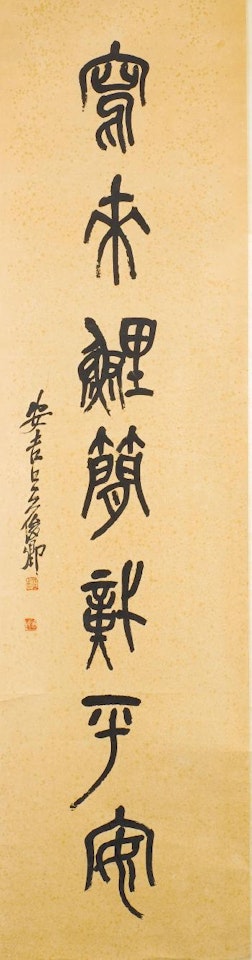 寫來鯉簡平安
安吉吳俊卿